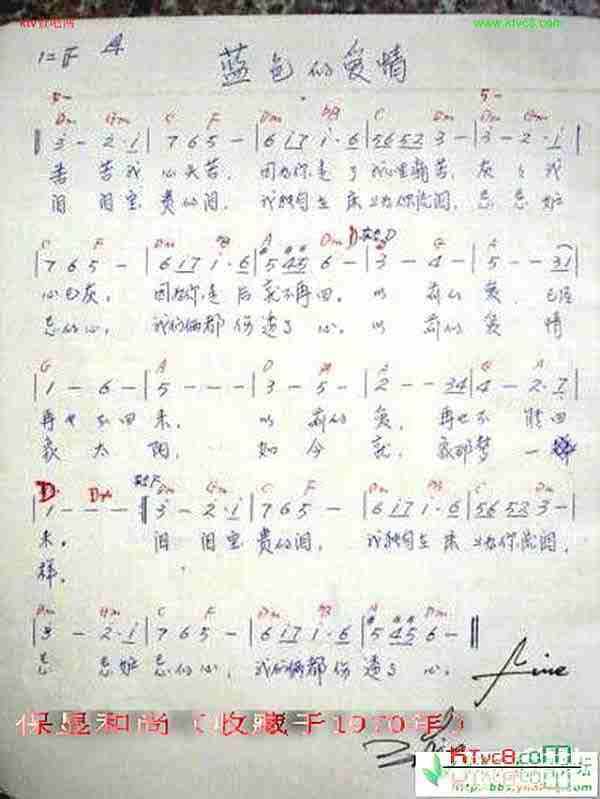 ktv官吧网
www.ktvc8.com
1=F A
蓝色的爱情
5-
5-
Dm Gm C F Dm bB C Dm Dm Gm
3 - 2·1 | 7 6 5 - | 6 1 7 1·6 | 5 6 5 2 3 - | 3 - 2·1 |
苦 苦我 心头苦, 因为你走了 我心里痛苦, 灰 了我
泪 泪宝 贵的泪, 我独自在 床上为你流泪, 忘 忘
C F Dm bB A Dm D转D G A
| 7 6 5 - | 6 1 7 1·6 | #5 #4 #5 6 - | 3 - 4 - | 5 - - 3 1 |
心已灰, 因为你走后 就不再回。 以 前的 爱, 已经
忘的心, 我们俩都 伤透了 心。 以 前的 爱 情
G A D A G A
| 1 - 6 - | 5 - - - | 3 - 5 - | 2 - - 3 4 | 4 - 2·7 |
再也不回 来, 以 前的 爱, 再也不 能回
象 太 阳, 如 今 就, 象那梦 一
D. 转F Dm Gm C F Dm bB C Dm
| 1 - - - ‖ 3 - 2·1 | 7 6 5 - | 6 1 7 1·6 | 5 6 5 2 3 - |
来。 泪 泪宝 贵的泪, 我独自在 床上为你流泪,
样。
Dm Gm C F Dm bB A Dm
| 3 - 2·1 | 7 6 5 - | 6 1 7 1·6 | #5 #4 #5 6 - ‖
忘 忘 忘的心, 我们俩都 伤透了 心。
fine
保昱和尚（收藏于1970年）
KTvc8.com